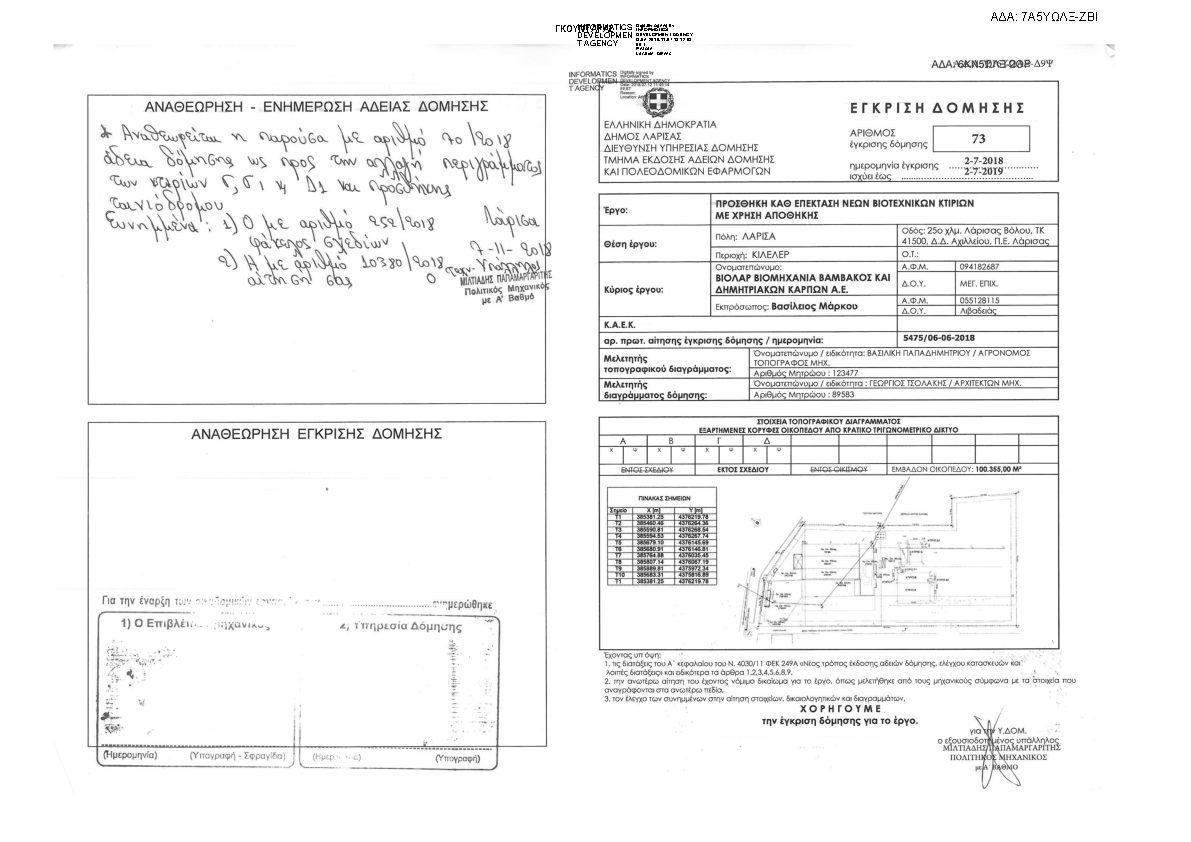 ΑΔΑ: 7Α5ΥΩΛΞ-ΖΒΙ
INFORMATICS DEVELOPMEN T AGENCY
ΑΝΑΘΕΩΡΗΣΗ - ΕΝΗΜΕΡΩΣΗ ΑΔΕΙΑΣ ΔΟΜΗΣΗΣ
* Αναθεωρείται η παρούσα με αριθμό 70/2018
άδεια δόμησης ως προς την αλλαγή περιγράμματος
των κτιρίων Γ, Γ1 & Δ1 και προσθήκης
ταινιοδρόμου
Συνημμένα: 1) Ο με αριθμό 252/2018
φάκελος σχεδίων
2) Η με αριθμό 10380/2018
αίτησή σας
Λάρισα
7-11-2018
Ο
ΜΙΛΤΙΑΔΗΣ ΠΑΠΑΜΑΡΓΑΡΙΤΗΣ
Πολιτικός Μηχανικός
με Α' Βαθμό
ΑΝΑΘΕΩΡΗΣΗ ΕΓΚΡΙΣΗΣ ΔΟΜΗΣΗΣ
Για την έναρξη των ενημερώθηκε
1) Ο Επιβλέπων Μηχανικός
2) Υπηρεσία Δόμησης
(Ημερομηνία) (Υπογραφή - Σφραγίδα)
(Υπογραφή)
INFORMATICS
DEVELOPMEN
T AGENCY
Digitally signed by
INFORMATICS
DEVELOPMENT AGENCY
ΕΛΛΗΝΙΚΗ ΔΗΜΟΚΡΑΤΙΑ
ΔΗΜΟΣ ΛΑΡΙΣΑΣ
ΔΙΕΥΘΥΝΣΗ ΥΠΗΡΕΣΙΑΣ ΔΟΜΗΣΗΣ
ΤΜΗΜΑ ΕΚΔΟΣΗΣ ΑΔΕΙΩΝ ΔΟΜΗΣΗΣ
ΚΑΙ ΠΟΛΕΟΔΟΜΙΚΩΝ ΕΦΑΡΜΟΓΩΝ
ΕΓΚΡΙΣΗ ΔΟΜΗΣΗΣ
ΑΡΙΘΜΟΣ
έγκρισης δόμησης 73
ημερομηνία έγκρισης 2-7-2018
ισχύει έως 2-7-2019
Έργο: ΠΡΟΣΘΗΚΗ ΚΑΘ ΕΠΕΚΤΑΣΗ ΝΕΩΝ ΒΙΟΤΕΧΝΙΚΩΝ ΚΤΙΡΙΩΝ
ΜΕ ΧΡΗΣΗ ΑΠΟΘΗΚΗΣ
Θέση έργου: Πόλη: ΛΑΡΙΣΑ Οδός: 25ο χλμ. Λάρισας Βόλου, ΤΚ
41500, Δ.Δ. Αχιλλείου, Π.Ε. Λάρισας
Περιοχή: ΚΙΛΕΛΕΡ Ο.Τ.:
Κύριος έργου: Ονοματεπώνυμο:
ΒΙΟΛΑΡ ΒΙΟΜΗΧΑΝΙΑ ΒΑΜΒΑΚΟΣ ΚΑΙ
ΔΗΜΗΤΡΙΑΚΩΝ ΚΑΡΠΩΝ Α.Ε.
Α.Φ.Μ. 094182687
Δ.Ο.Υ. ΜΕΓ. ΕΠΙΧ.
Εκπρόσωπος: Βασίλειος Μάρκου
Α.Φ.Μ. 055128115
Δ.Ο.Υ. Λιβαδειάς
Κ.Α.Ε.Κ.
αρ. πρωτ. αίτησης έγκρισης δόμησης / ημερομηνία: 5475/06-06-2018
Μελετητής
τοπογραφικού διαγράμματος:
Όνοματεπώνυμο / ειδικότητα: ΒΑΣΙΛΙΚΗ ΠΑΠΑΔΗΜΗΤΡΙΟΥ / ΑΓΡΟΝΟΜΟΣ
ΤΟΠΟΓΡΑΦΟΣ ΜΗΧ.
Αριθμός Μητρώου : 123477
Μελετητής
διαγράμματος δόμησης:
Όνοματεπώνυμο / ειδικότητα : ΓΕΩΡΓΙΟΣ ΤΣΟΛΑΚΗΣ / ΑΡΧΙΤΕΚΤΩΝ ΜΗΧ.
Αριθμός Μητρώου : 89583
ΣΤΟΙΧΕΙΑ ΤΟΠΟΓΡΑΦΙΚΟΥ ΔΙΑΓΡΑΜΜΑΤΟΣ
ΕΞΑΡΤΗΜΕΝΕΣ ΚΟΡΥΦΕΣ ΟΙΚΟΠΕΔΟΥ ΑΠΟ ΚΡΑΤΙΚΟ ΤΡΙΓΩΝΟΜΕΤΡΙΚΟ ΔΙΚΤΥΟ
Α Β Γ Δ
Χ Ψ Χ Ψ Χ Ψ Χ Ψ
ΕΝΤΟΣ ΣΧΕΔΙΟΥ ΕΚΤΟΣ ΣΧΕΔΙΟΥ ΕΝΤΟΣ ΟΙΚΙΣΜΟΥ ΕΜΒΑΔΟΝ ΟΙΚΟΠΕΔΟΥ: 100.355,00 Μ²
ΠΙΝΑΚΑΣ ΣΗΜΕΙΩΝ
Σημείο X [m] Y [m]
T1 385381.25 4376219.78
T2 385460.46 4376264.36
T3 385590.81 4376268.54
T4 385594.53 4376267.74
T5 385679.10 4376145.69
T6 385680.91 4376146.81
T7 385764.88 4376035.45
T8 385807.14 4376067.19
T9 385889.81 4375972.34
T10 385683.31 4375816.89
T1 385381.25 4376219.78
Έχοντας υπ όψη:
1. τις διατάξεις του Α΄ κεφαλαίου του Ν. 4030/11 ΦΕΚ 249Α «Νέος τρόπος έκδοσης αδειών δόμησης, ελέγχου κατασκευών και
λοιπές διατάξεις» και ειδικότερα τα άρθρα 1,2,3,4,5,6,8,9.
2. την ανωτέρω αίτηση του έχοντος νόμιμο δικαίωμα για το έργο, όπως μελετήθηκε από τους μηχανικούς σύμφωνα με τα στοιχεία που
αναγράφονται στα ανωτέρω πεδία.
3. τον έλεγχο των συνημμένων στην αίτηση στοιχείων, δικαιολογητικών και διαγραμμάτων,
ΧΟΡΗΓΟΥΜΕ
την έγκριση δόμησης για το έργο.
για την Υ.ΔΟΜ.
ο εξουσιοδοτημένος υπάλληλος
ΜΙΛΤΙΑΔΗΣ ΠΑΠΑΜΑΡΓΑΡΙΤΗΣ
ΠΟΛΙΤΙΚΟΣ ΜΗΧΑΝΙΚΟΣ
με Α' ΒΑΘΜΟ